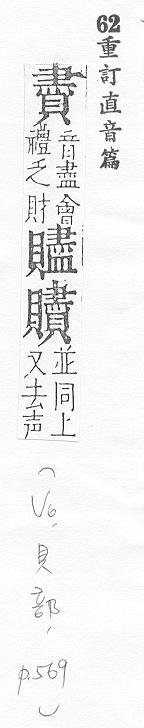 62重訂直音篇
賮 音盡會
禮之財
贐 並同上
又去声
(V6, 貝部, p.569)